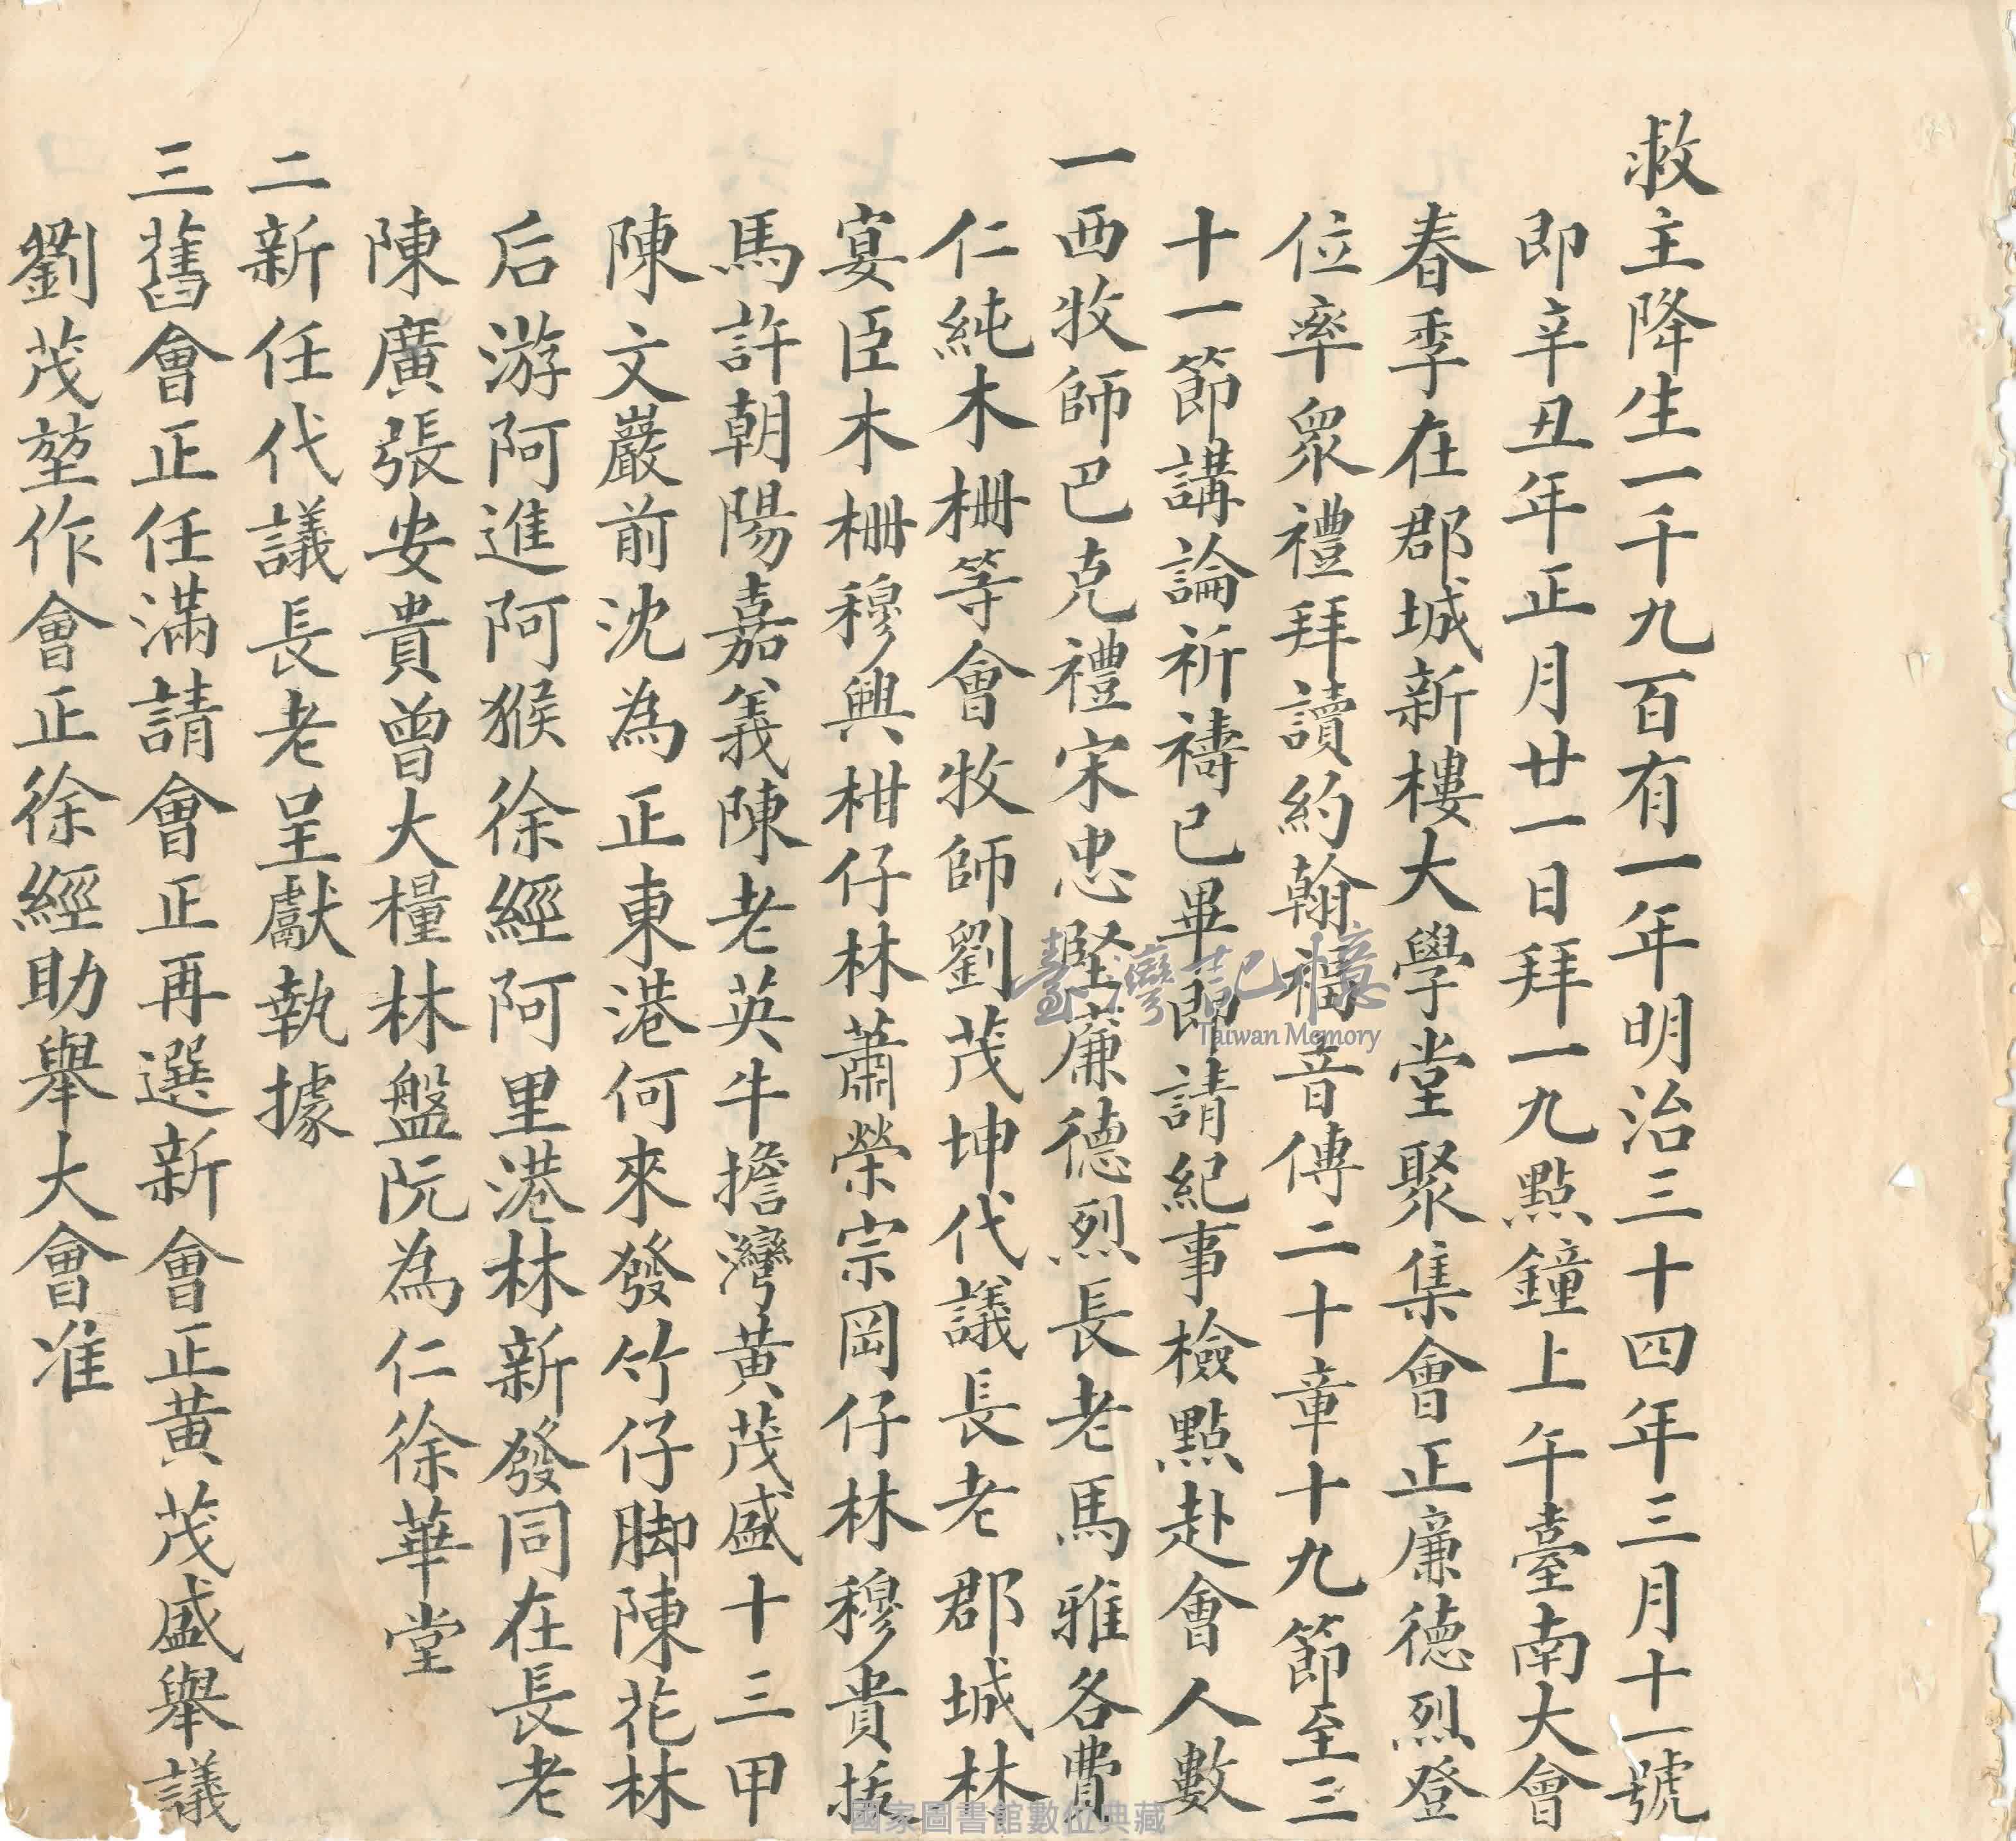 救主降生一千九百有一年明治三十四年三月十一號
即辛丑年正月廿一日拜一九點鐘上午臺南大會
春季在郡城新樓大學堂聚集會正廉德烈登
位率眾禮拜讀約翰福音傳二十章十九節至三
十一節講論祈禱已畢即請紀事檢點赴會人數
一西牧師巴克禮宋忠堅廉德烈長老馬雅各費
仁純木柵等會牧師劉茂坤代議長老郡城林
宴臣木柵穆興柑仔林蕭榮宗岡仔林穆貴拔
馬許朝陽嘉義陳老英牛擔灣黃茂盛十三甲
陳文巖前沈為正東港何來發竹仔脚陳花林
后游阿進阿猴徐經阿里港林新發同在長老
陳廣張安貴曾大糧林盤阮為仁徐華堂
二新任代議長老呈獻執據
三舊會正任滿請會正再選新會正黃茂盛舉議
劉茂堃作會正徐經助舉大會准
臺灣記憶
Taiwan Memory
國家圖書館數位典藏